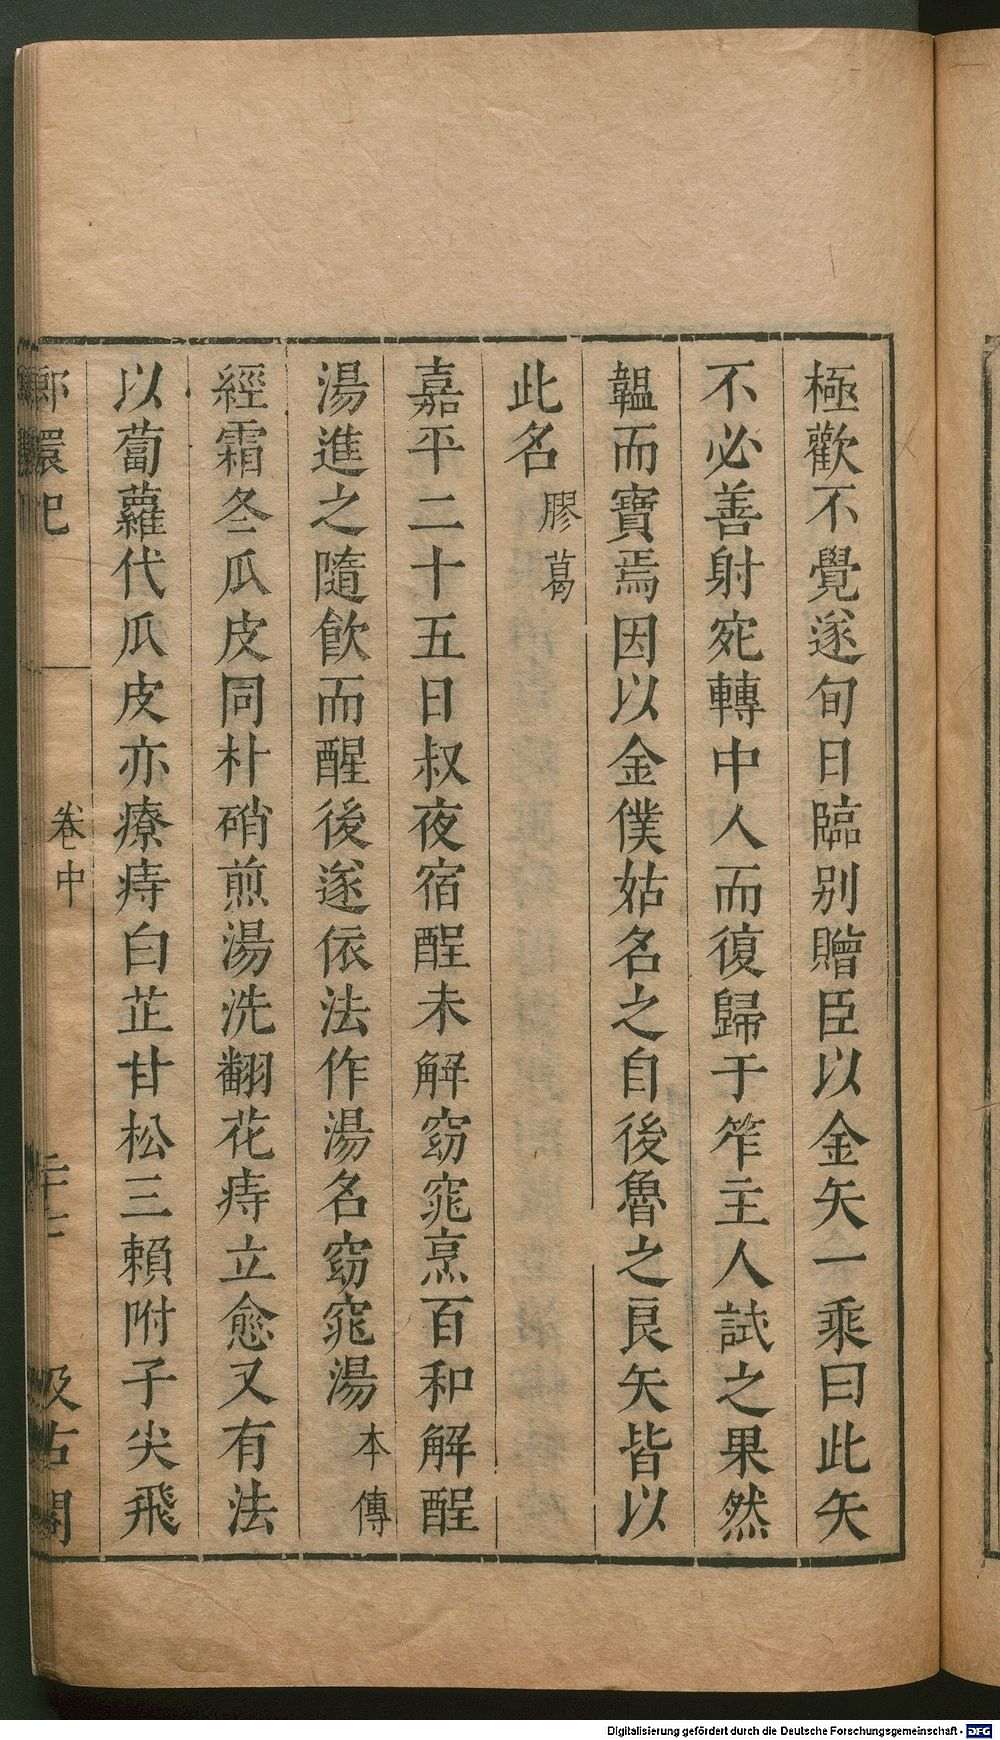 極歡不覺遂旬日臨别贈臣以金矢一乘曰此矢
不必善射宛轉中人而復歸于笮主人試之果然
韞而寶焉因以金僕姑名之自後魯之良矢皆以
此名膠葛
嘉平二十五日叔夜宿酲未解窈窕烹百和解酲
湯進之隨飮而醒後遂依法作湯名窈窕湯本傳
經霜冬瓜皮同朴硝煎湯洗翻花痔立愈又有法
以蔔蘿代瓜皮亦療痔白芷甘松三賴附子尖飛
環記
卷中
汲古閣
Digitalisierung gefördert durch die Deutsche Forschungsgemeinschaft - DFG